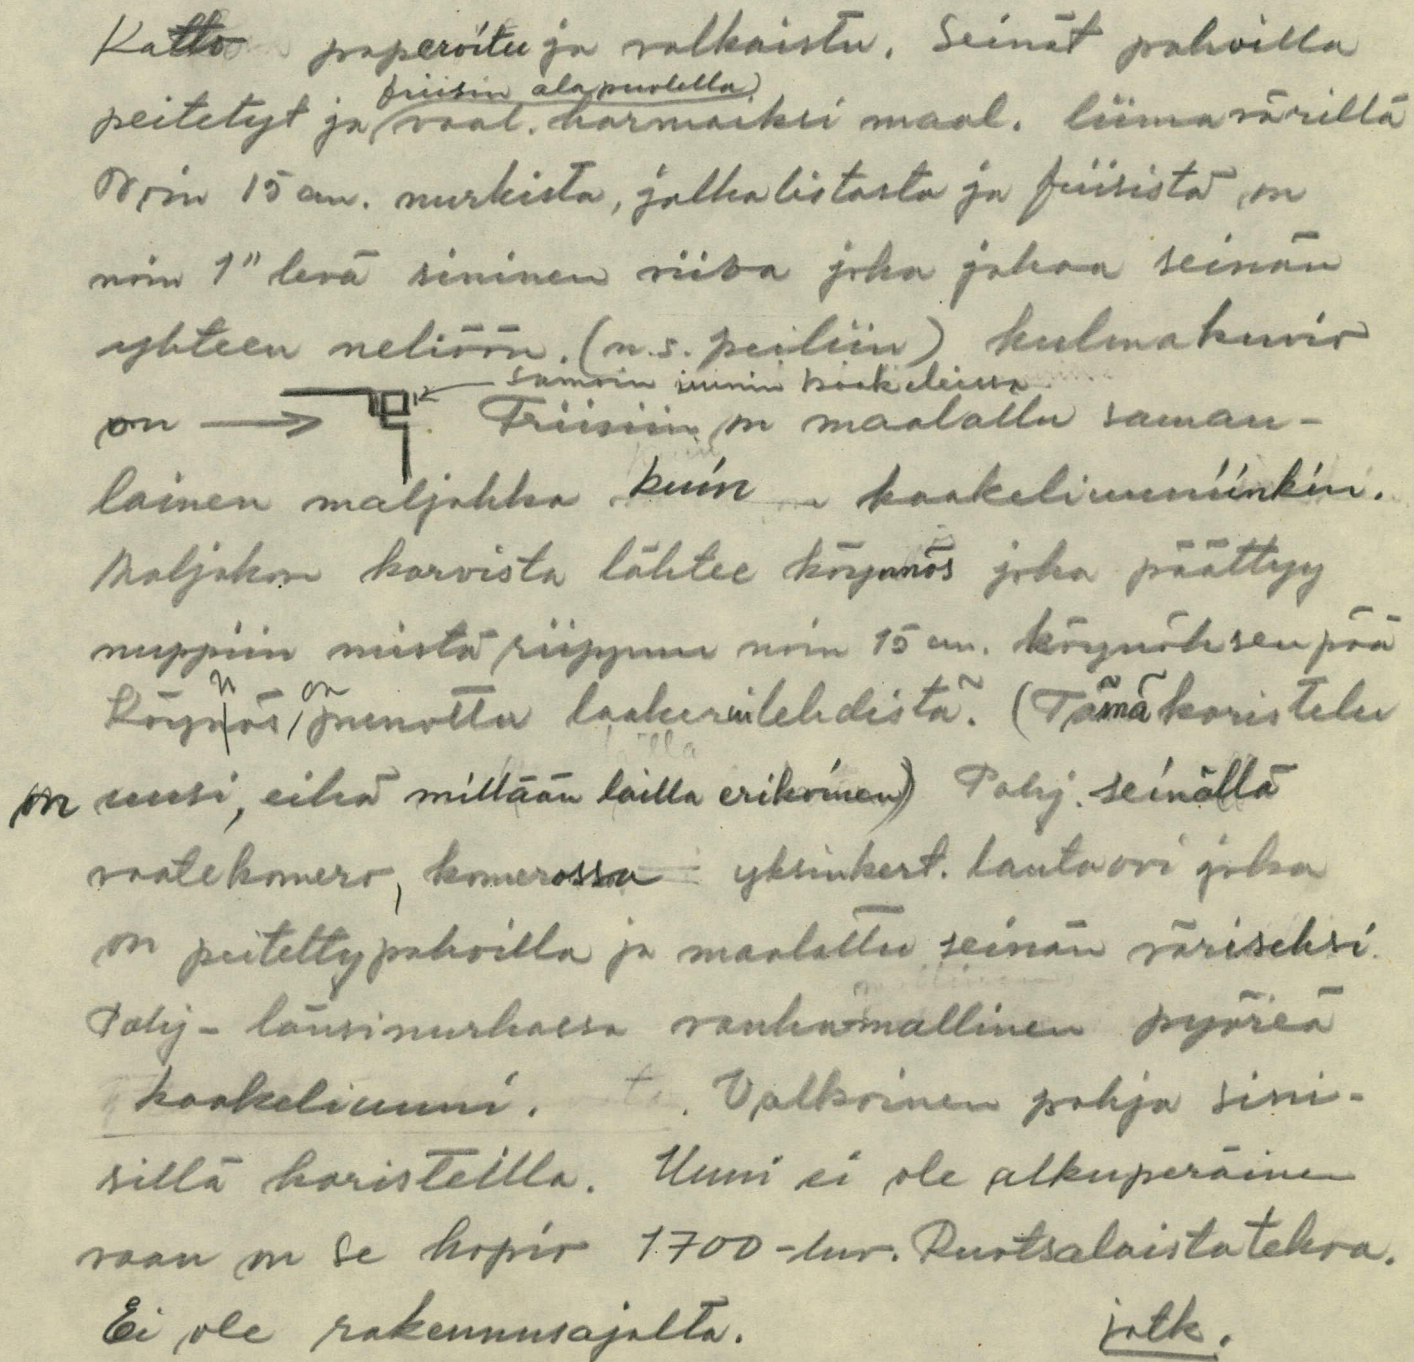 Katto paperoitu ja valkaistu. Seinät pahvilla
friisin alapuolella
peitetyt ja vaal. harmaiksi maal. liimavärillä
Noin 15 cm. nurkista, jalkalistasta ja friisistä on
noin 1" levä sininen viiva joka jakaa seinän
yhteen neliöön. (n.s. peiliin) kulmakuvio
samoin uunin kaakeleissa
on → Friisiin on maalallu saman-
lainen maljakko kuin kaakeliuuniinkin.
Maljakon korvista lähtee köynnös joka päättyy
nuppiin mistä riippuu noin 15 cm. köynöksen pää
Köynnös on punottu laakerinlehdistä. (Tämä koristelu
on uusi, eikä millään lailla erikoinen) Pohj. seinällä
vaatekomero, komerossa yksinkert. lautaovi joka
on peitetty pahvilla ja maalattu seinän väriseksi.
Pohj - länsinurkassa vanhamallinen pyöreä
kaakeliuuni. Valkoinen pohja sini-
sillä koristeilla. Uuni ei ole alkuperäinen
vaan on se kopio 1700-luv. Ruotsalaista tekoa.
Ei ole rakennusajalta. jatk.